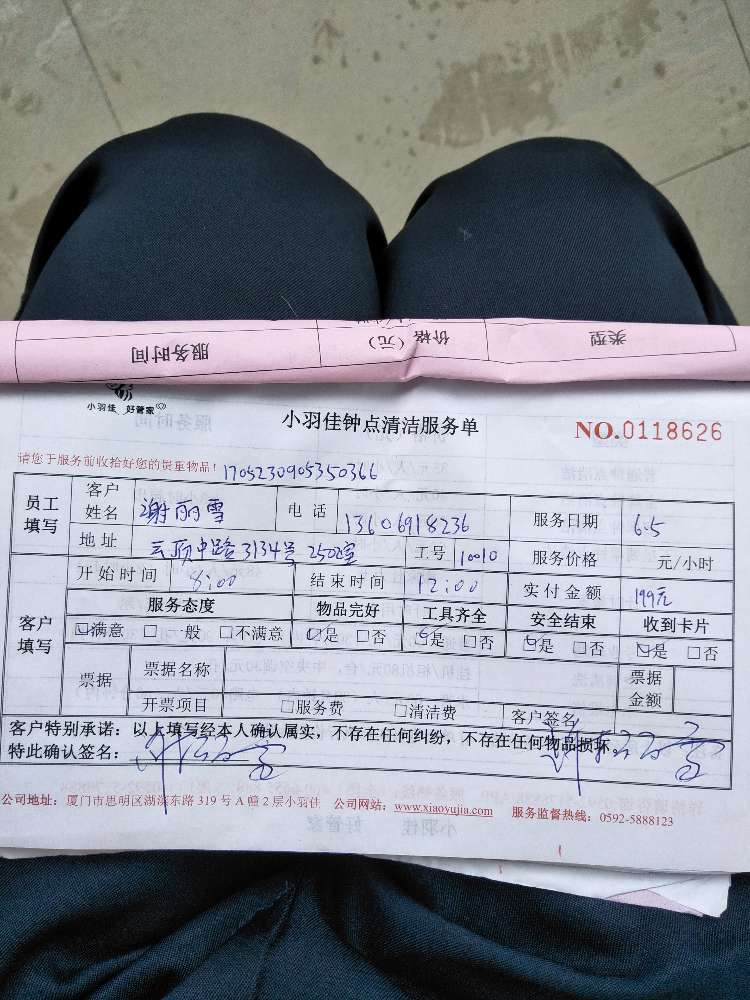 服务时间 价格（元） 类型
小羽佳 好管家
小羽佳钟点清洁服务单
NO.0118626
请您于服务前收拾好您的贵重物品！ 1705230905350366
员工填写 客户姓名 谢丽雪 电话 13606918236 服务日期 6.5
地址 云顶中路3134号2502室 工号 10010 服务价格 元/小时
客户填写 开始时间 8:00 结束时间 12:00 实付金额 199元
服务态度 物品完好 工具齐全 安全结束 收到卡片
☑满意 □一般 □不满意 ☑是 □否 ☑是 □否 ☑是 □否 ☑是 □否
票据 票据名称 票据金额
开票项目 □服务费 □清洁费 客户签名
客户特别承诺：以上填写经本人确认属实，不存在任何纠纷，不存在任何物品损坏
特此确认签名：
公司地址：厦门市思明区湖滨东路319号A幢2层小羽佳 公司网站：www.xiaoyujia.com 服务监督热线：0592-5888123